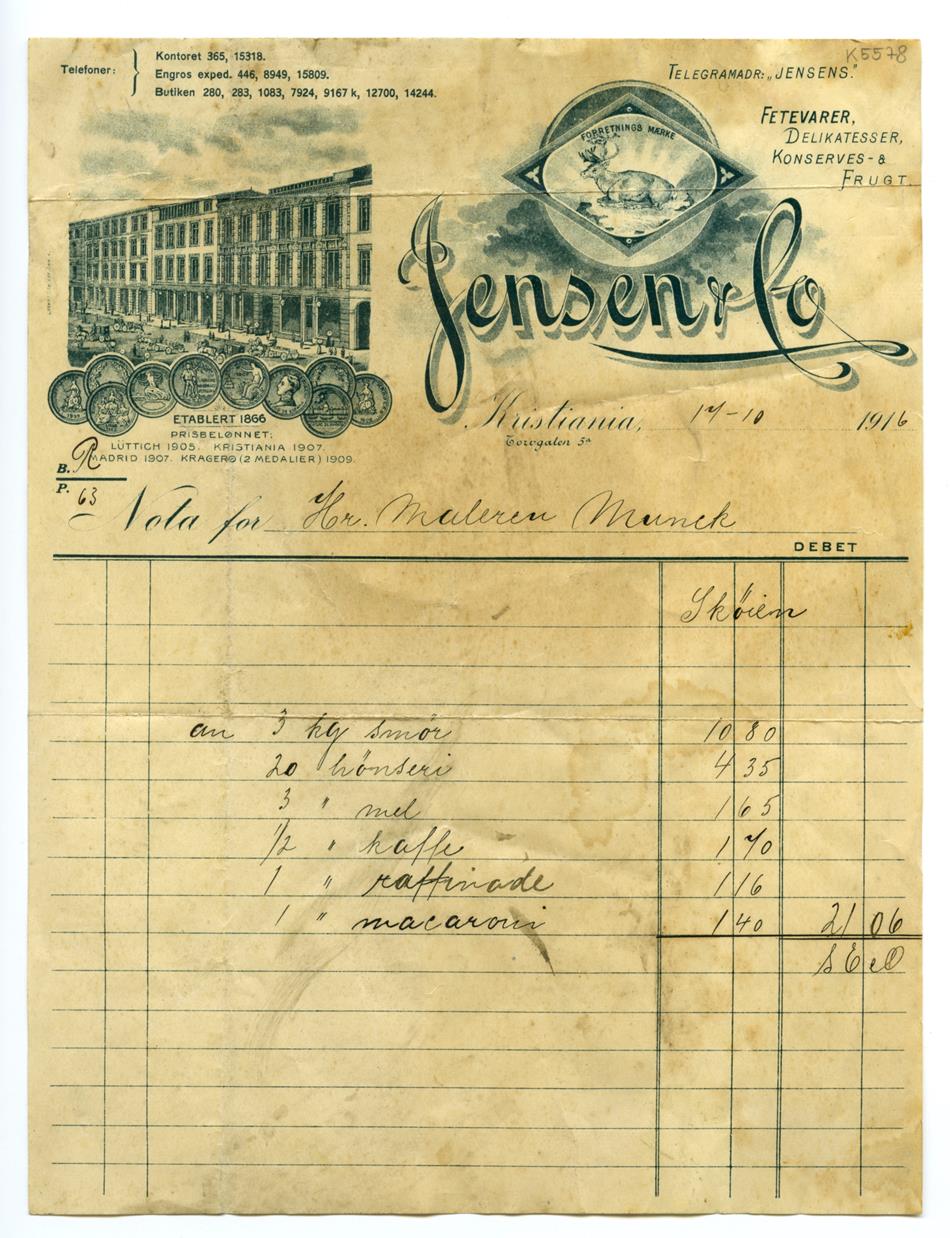 K5578
Telefoner:
Kontoret 365, 15318.
Engros exped. 446, 8949, 15809.
Butiken 280, 283, 1083, 7924, 9167 k, 12700, 14244.
TELEGRAMADR: „JENSENS."
FETEVARER,
DELIKATESSER,
KONSERVES- &
FRUGT.
FORRETNINGS MÆRKE
Jensen & Co
ETABLERT 1866
PRISBELØNNET:
LÜTTICH 1905. KRISTIANIA 1907.
MADRID 1907. KRAGERØ (2 MEDALIER) 1909.
Kristiania, 17-10 1916
Torvgaten 5ª
B. R
P. 63
Nota for Hr. Maleren Munck
DEBET
Sköien
an 3 kg smör 10 80
20 hönseri 4 35
3 " mel 1 65
1/2 " kaffe 1 70
1 " raffinade 1 16
1 " macaroni 1 40 21 06
S E e O